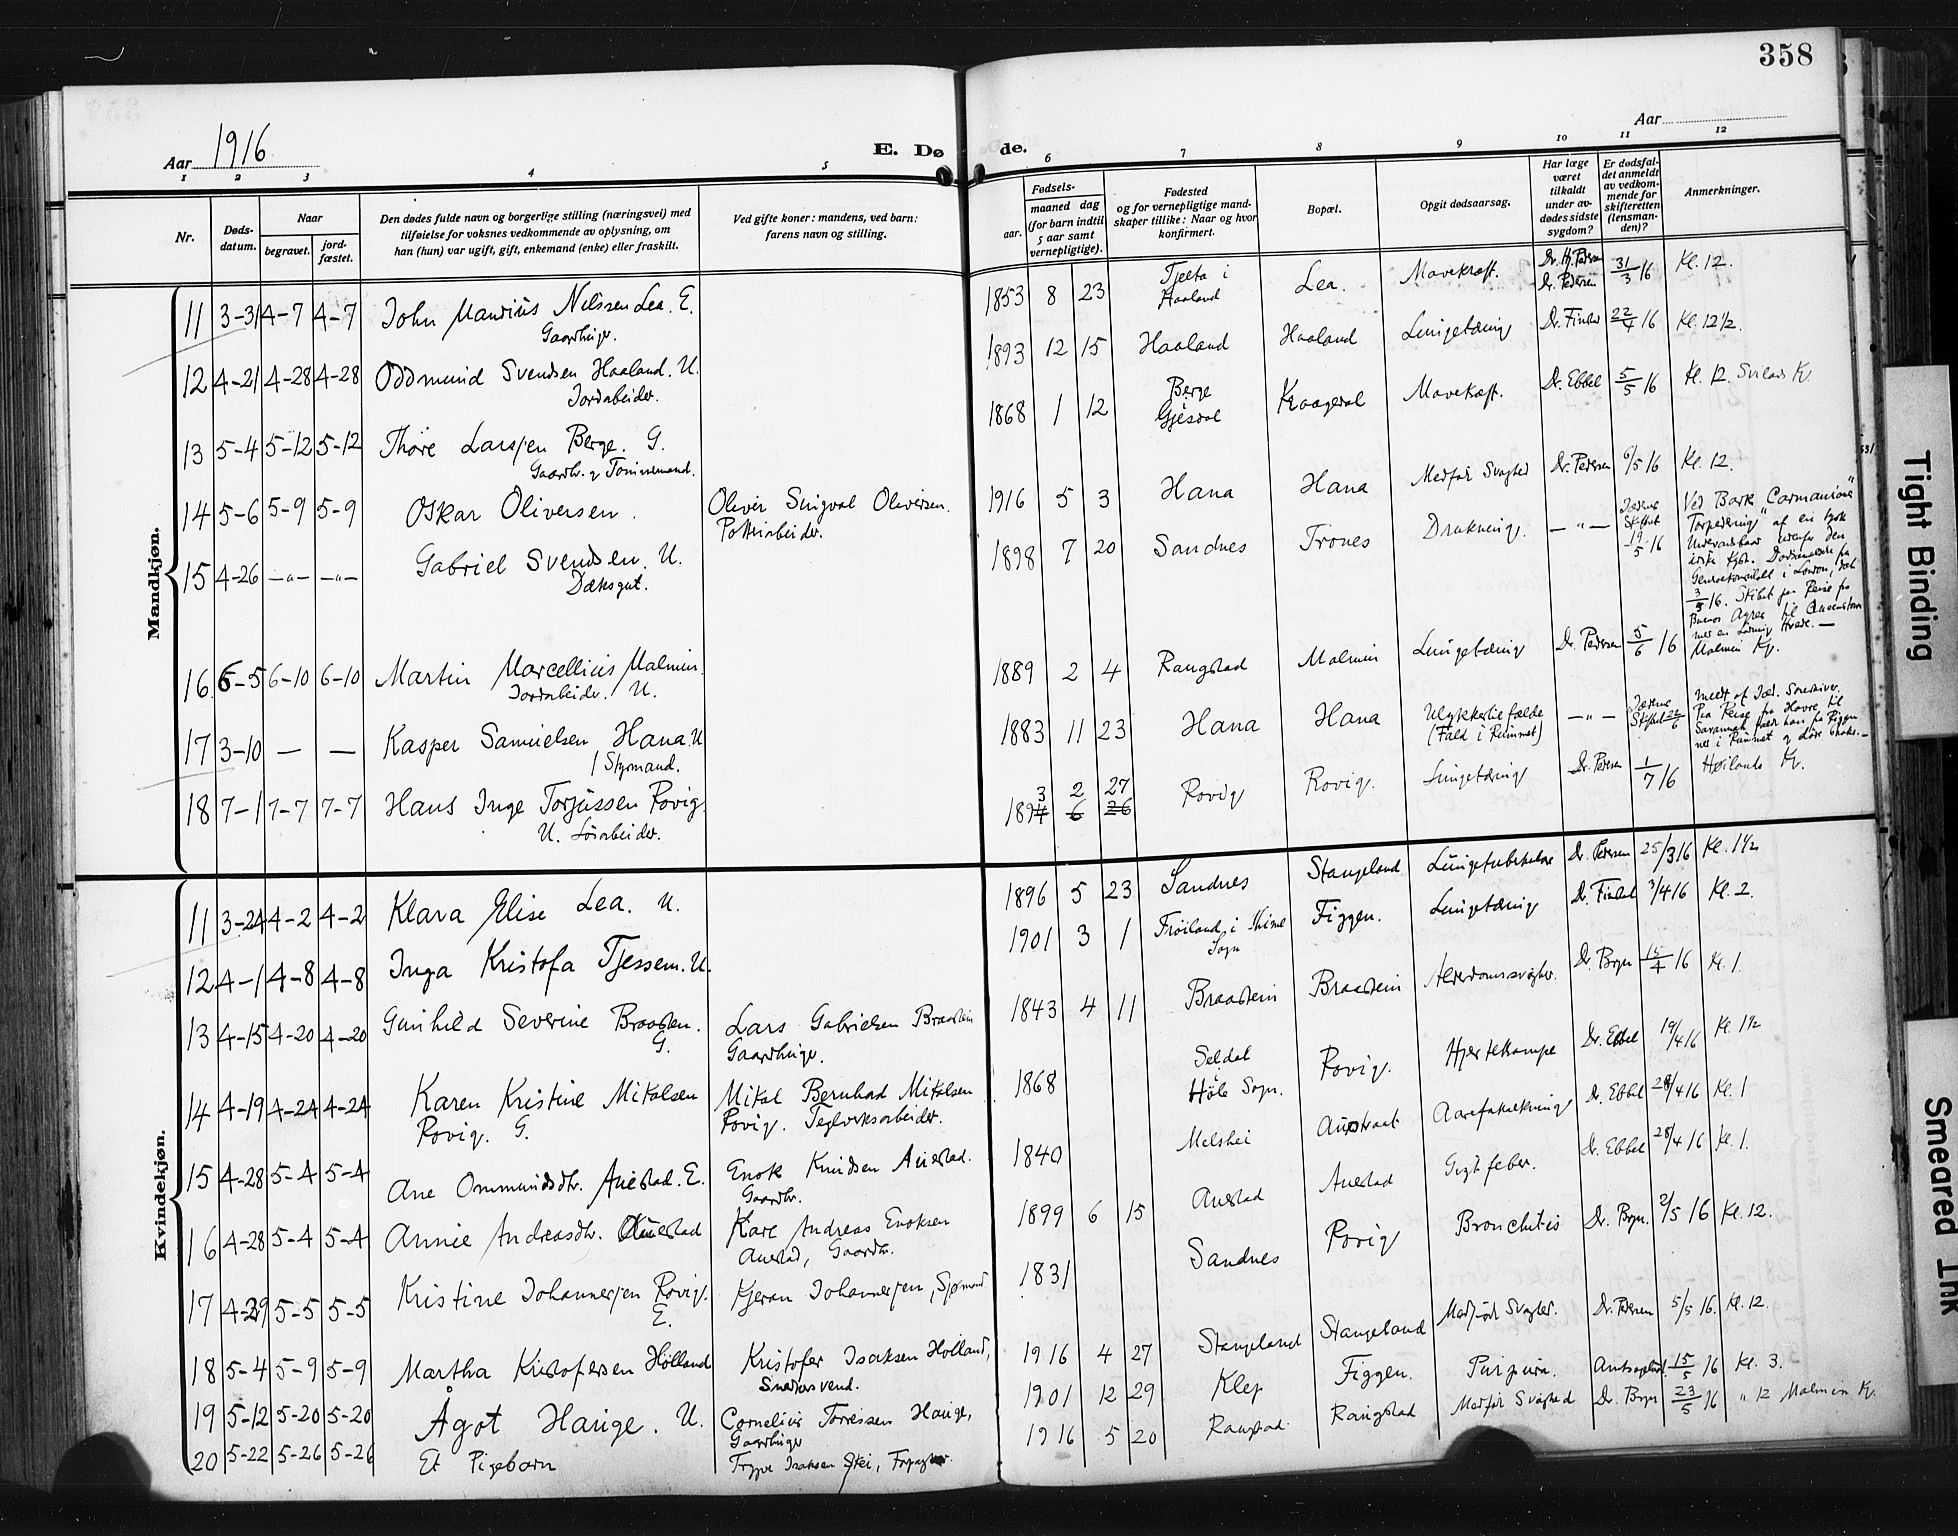 358
Aar 1916
E. Dø de.
Aar
1 2 3 4 5 6 7 8 9 10 11 12
Nr.
Døds-datum.
Naar
begravet.
jord-fæstet.
Den dødes fulde navn og borgerlige stilling (næringsvei) med
tilføielse for voksnes vedkommende av oplysning, om
han (hun) var ugift, gift, enkemand (enke) eller fraskilt.
Ved gifte koner: mandens, ved barn:
farens navn og stilling.
Fødsels-
aar. maaned dag
(for barn indtil
5 aar samt
vernepligtige).
Fødested
og for vernepligtige mand-
skaper tillike: Naar og hvor
konfirmert.
Bopæl.
Opgit dødsaarsag.
Har læge
været
tilkaldt
under av-
dødes sidste
sygdom?
Er dødsfal-
det anmeldt
av vedkom-
mende for
skifteretten
(lensman-
den)?
Anmerkninger.
Mandkjøn.
11 3-31 4-7 4-7 John Maurius Nilssen Lea. E. 1853 8 23 Tjelta i Lea. Mavekræft. Dr. Pedersen 31/3 16 Kl. 12.
Haaland
12 4-21 4-28 4-28 Oddmund Svendsen Haaland. U. 1893 12 15 Haaland Haaland Lungetæring 22/4 16 Kl. 12½.
Jordarbeider.
13 5-4 5-12 5-12 Thore Larssen Berge. G. 1868 1 12 Berge Mavekræft. Dr. Ebbel 5/5 16 Kl. 12.
14 5-6 5-9 5-9 Oskar Oliversen. Oliver Sigval Oliversen. 1916 5 3 Hana Hana Medfør Svaghed Dr. Pedersen 6/5 16 Kl. 12.
Potteriarbeider.
15 4-26 —„— —„— Gabriel Svendsen. U. 1898 7 20 Sandnes Trones Drukning. —„— 19/5 16 Ved Bark "Carmanians"
Dæksgut.
16 6-5 6-10 6-10 Martin Marcellius Malmin. 1889 2 4 Rangstad Malmin Lungetæring Dr. Pedersen 5/6 16 Malmin Kg.
Jordarbeider. U.
17 3-10 — — Kasper Samuelsen Hana. U 1883 11 23 Hana Hana Ulykkestilfælde —„—
Styrmand. (Fald i Rummet)
18 7-1 7-7 7-7 Hans Inge Torjussen Rovig. 1893 2 27 Rovig Rovig. Lungetæring Dr. Pedersen 1/7 16 Høilands Kg.
U.
Kvindekjøn.
11 3-24 4-2 4-2 Klara Elise Lea. U. 1896 5 23 Sandnes Stangeland Lungetuberkulose Dr. Pedersen 25/3 16 Kl. 1½
12 4-1 4-8 4-8 Inga Kristofa Tjessem. U. 1901 3 1 Frøiland i Thime Figgen. Lungetæring 3/4 16 Kl. 2.
Sogn
13 4-15 4-20 4-20 Gunhild Severine Braasten. Lars Gabrielsen Braastein 1843 4 11 Braastein Braastein Dr. Bryn 15/4 16 Kl. 1.
G. Gaardbruger.
14 4-19 4-24 4-24 Karen Kristine Mikalsen Mikal Bernhard Mikalsen 1868 Seldal Rovig. Hjertekrampe Dr. Ebbel 19/4 16 Kl. 1½
Rovig. G. Rovig. Teglverksarbeider. i Høle Sogn.
15 4-28 5-4 5-4 Ane Ommundsdtr. Auestad. E. Enok Knudsen Auestad. 1840 Melshei Austraat Aareforkalkning Dr. Ebbel 28/4 16 Kl. 1
Gaardbr.
16 4-28 5-4 5-4 Annie Andreasdtr. Auestad Kare Andreas Enoksen 1899 6 15 Auestad Auestad Gigtfeber. Dr. Ebbel 28/4 16 Kl. 1.
Auestad, Gaardbr.
17 4-29 5-5 5-5 Kristine Johannessen Rovig. Kjeran Johannessen, Sjømand 1831 Sandnes Rovig Bronchitis Dr. Bryn. 2/5 16 Kl. 12.
E.
18 5-4 5-9 5-9 Martha Kristofersen Holland Kristofer Isaksen Holland, 1916 4 27 Stangeland Stangeland Medfødt Svaghed. Dr. Pedersen 5/5 16. Kl. 12.
Snedkersvend.
19 5-12 5-20 5-20 Ågot Hauge. U. Cornelius Torresen Hauge, 1901 12 29 Klep Figgen. Purpura. 15/5 16 Kl. 3.
Gaardbruger
20 5-22 5-26 5-26 Et Pigebarn Trygve Isaksen Skei, Forpagter. 1916 5 20 Raugstad Raugstad Medfør Svaghed Dr. Bryn 23/5 16 „ 12 Malmin Kg.
Tight Binding
Smeared Ink